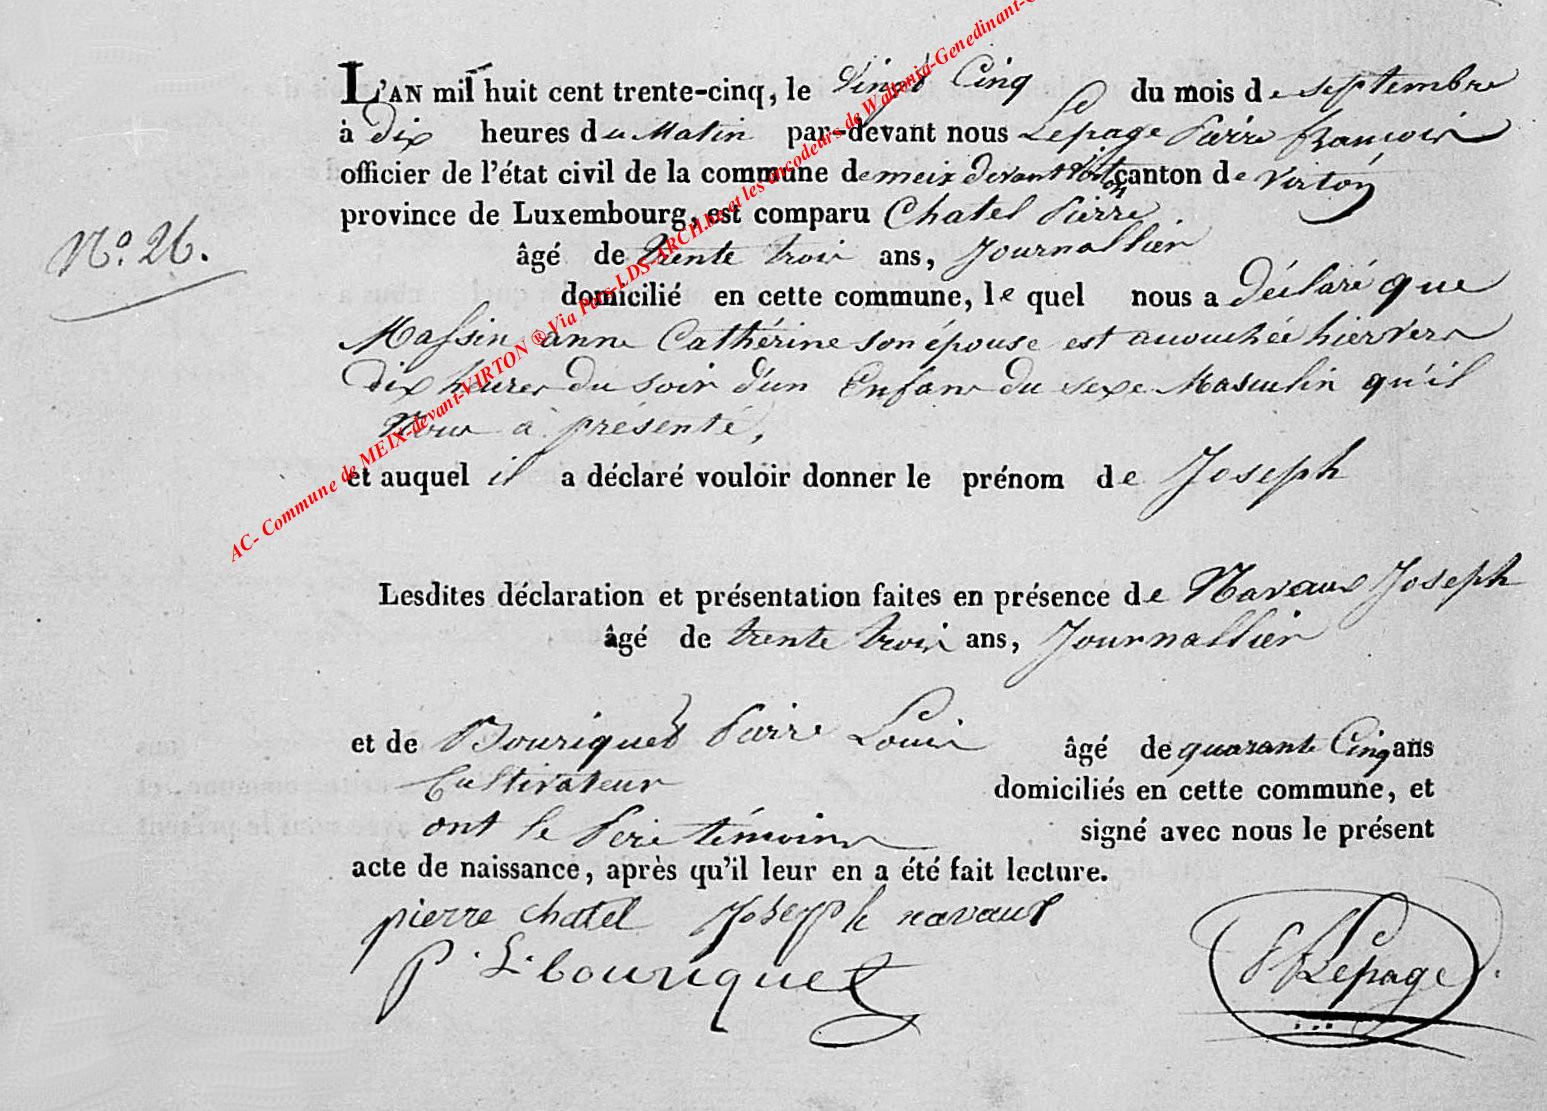 L'AN mil huit cent trente-cinq, le Vingt Cinq du mois de septembre
à dix heures du Matin par-devant nous Lepage Pierre François
officier de l'état civil de la commune de meix devant Virton canton de Virton
province de Luxembourg, est comparu Chatel Pierre.
âgé de trente trois ans, Journallier
N.º 26.
domicilié en cette commune, le quel nous a déclaré que
Massin anne Cathérine son épouse est accouchée hier vers
dix heures du soir d'un Enfant du sexe Masculin qu'il
Nous a présenté,
et auquel il a déclaré vouloir donner le prénom de Joseph
Lesdites déclaration et présentation faites en présence de Navaux Joseph
âgé de trente trois ans, Journallier
et de Bouriquet Pierre Louis âgé de quarante Cinq ans
Cultivateur domiciliés en cette commune, et
ont le Père témoins signé avec nous le présent
acte de naissance, après qu'il leur en a été fait lecture.
pierre chatel Joseph navaux
P. L. bouriquet PF Lepage
AC- Commune de MEIX-devant-VIRTON ® Via Pers-LDS-ARCH.be et les encodeurs de Walronia-Genedinant-G